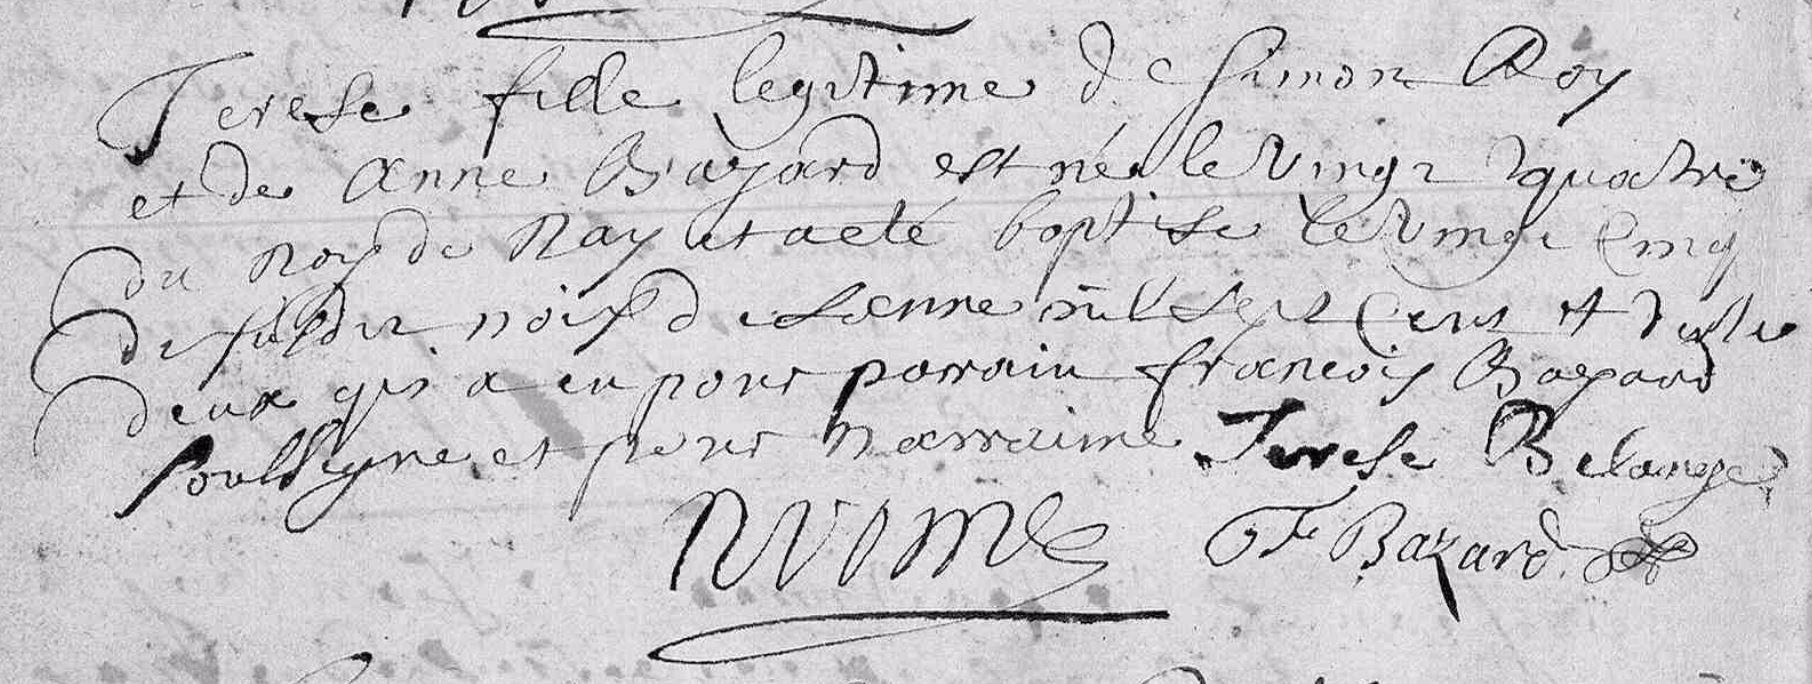 Terese fille legitime de Simon Roy
et de Anne Bazard est née le vingt quatre
du moy de May et a eté baptise le vingt cinq
du dit mois de lanne mil sept cens et
deux qui a eu pour parrain francois Bazard
et pour marraine Terese Belange
F Bazard